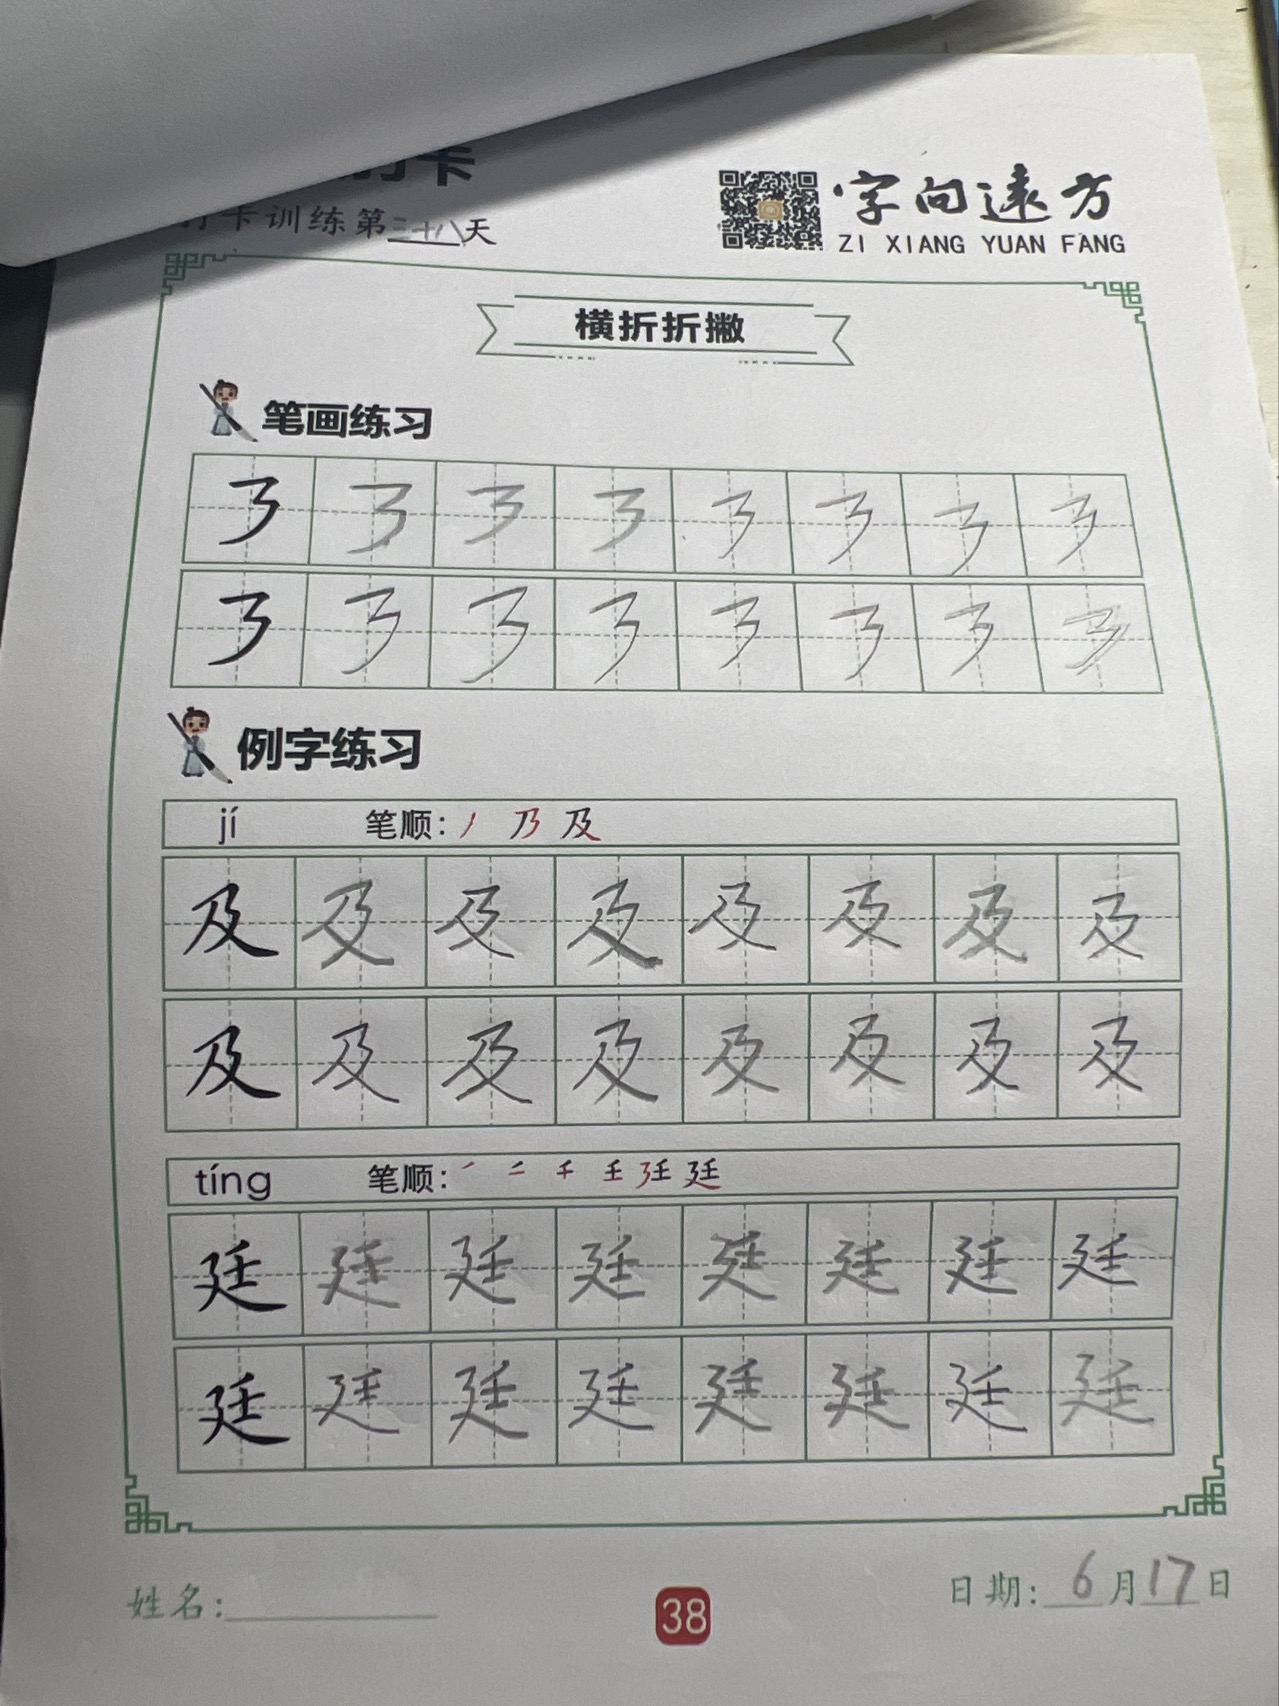 打卡
打卡训练第三十八天
字向远方
ZI XIANG YUAN FANG
横折折撇
笔画练习
例字练习
jí 笔顺: 丿 乃 及
及 及 及 及 及 及 及 及
及 及 及 及 及 及 及 及
tíng 笔顺:
廷 廷 廷 廷 廷 廷 廷 廷
廷 廷 廷 廷 廷 廷 廷 廷
姓名: 38 日期: 6月17日